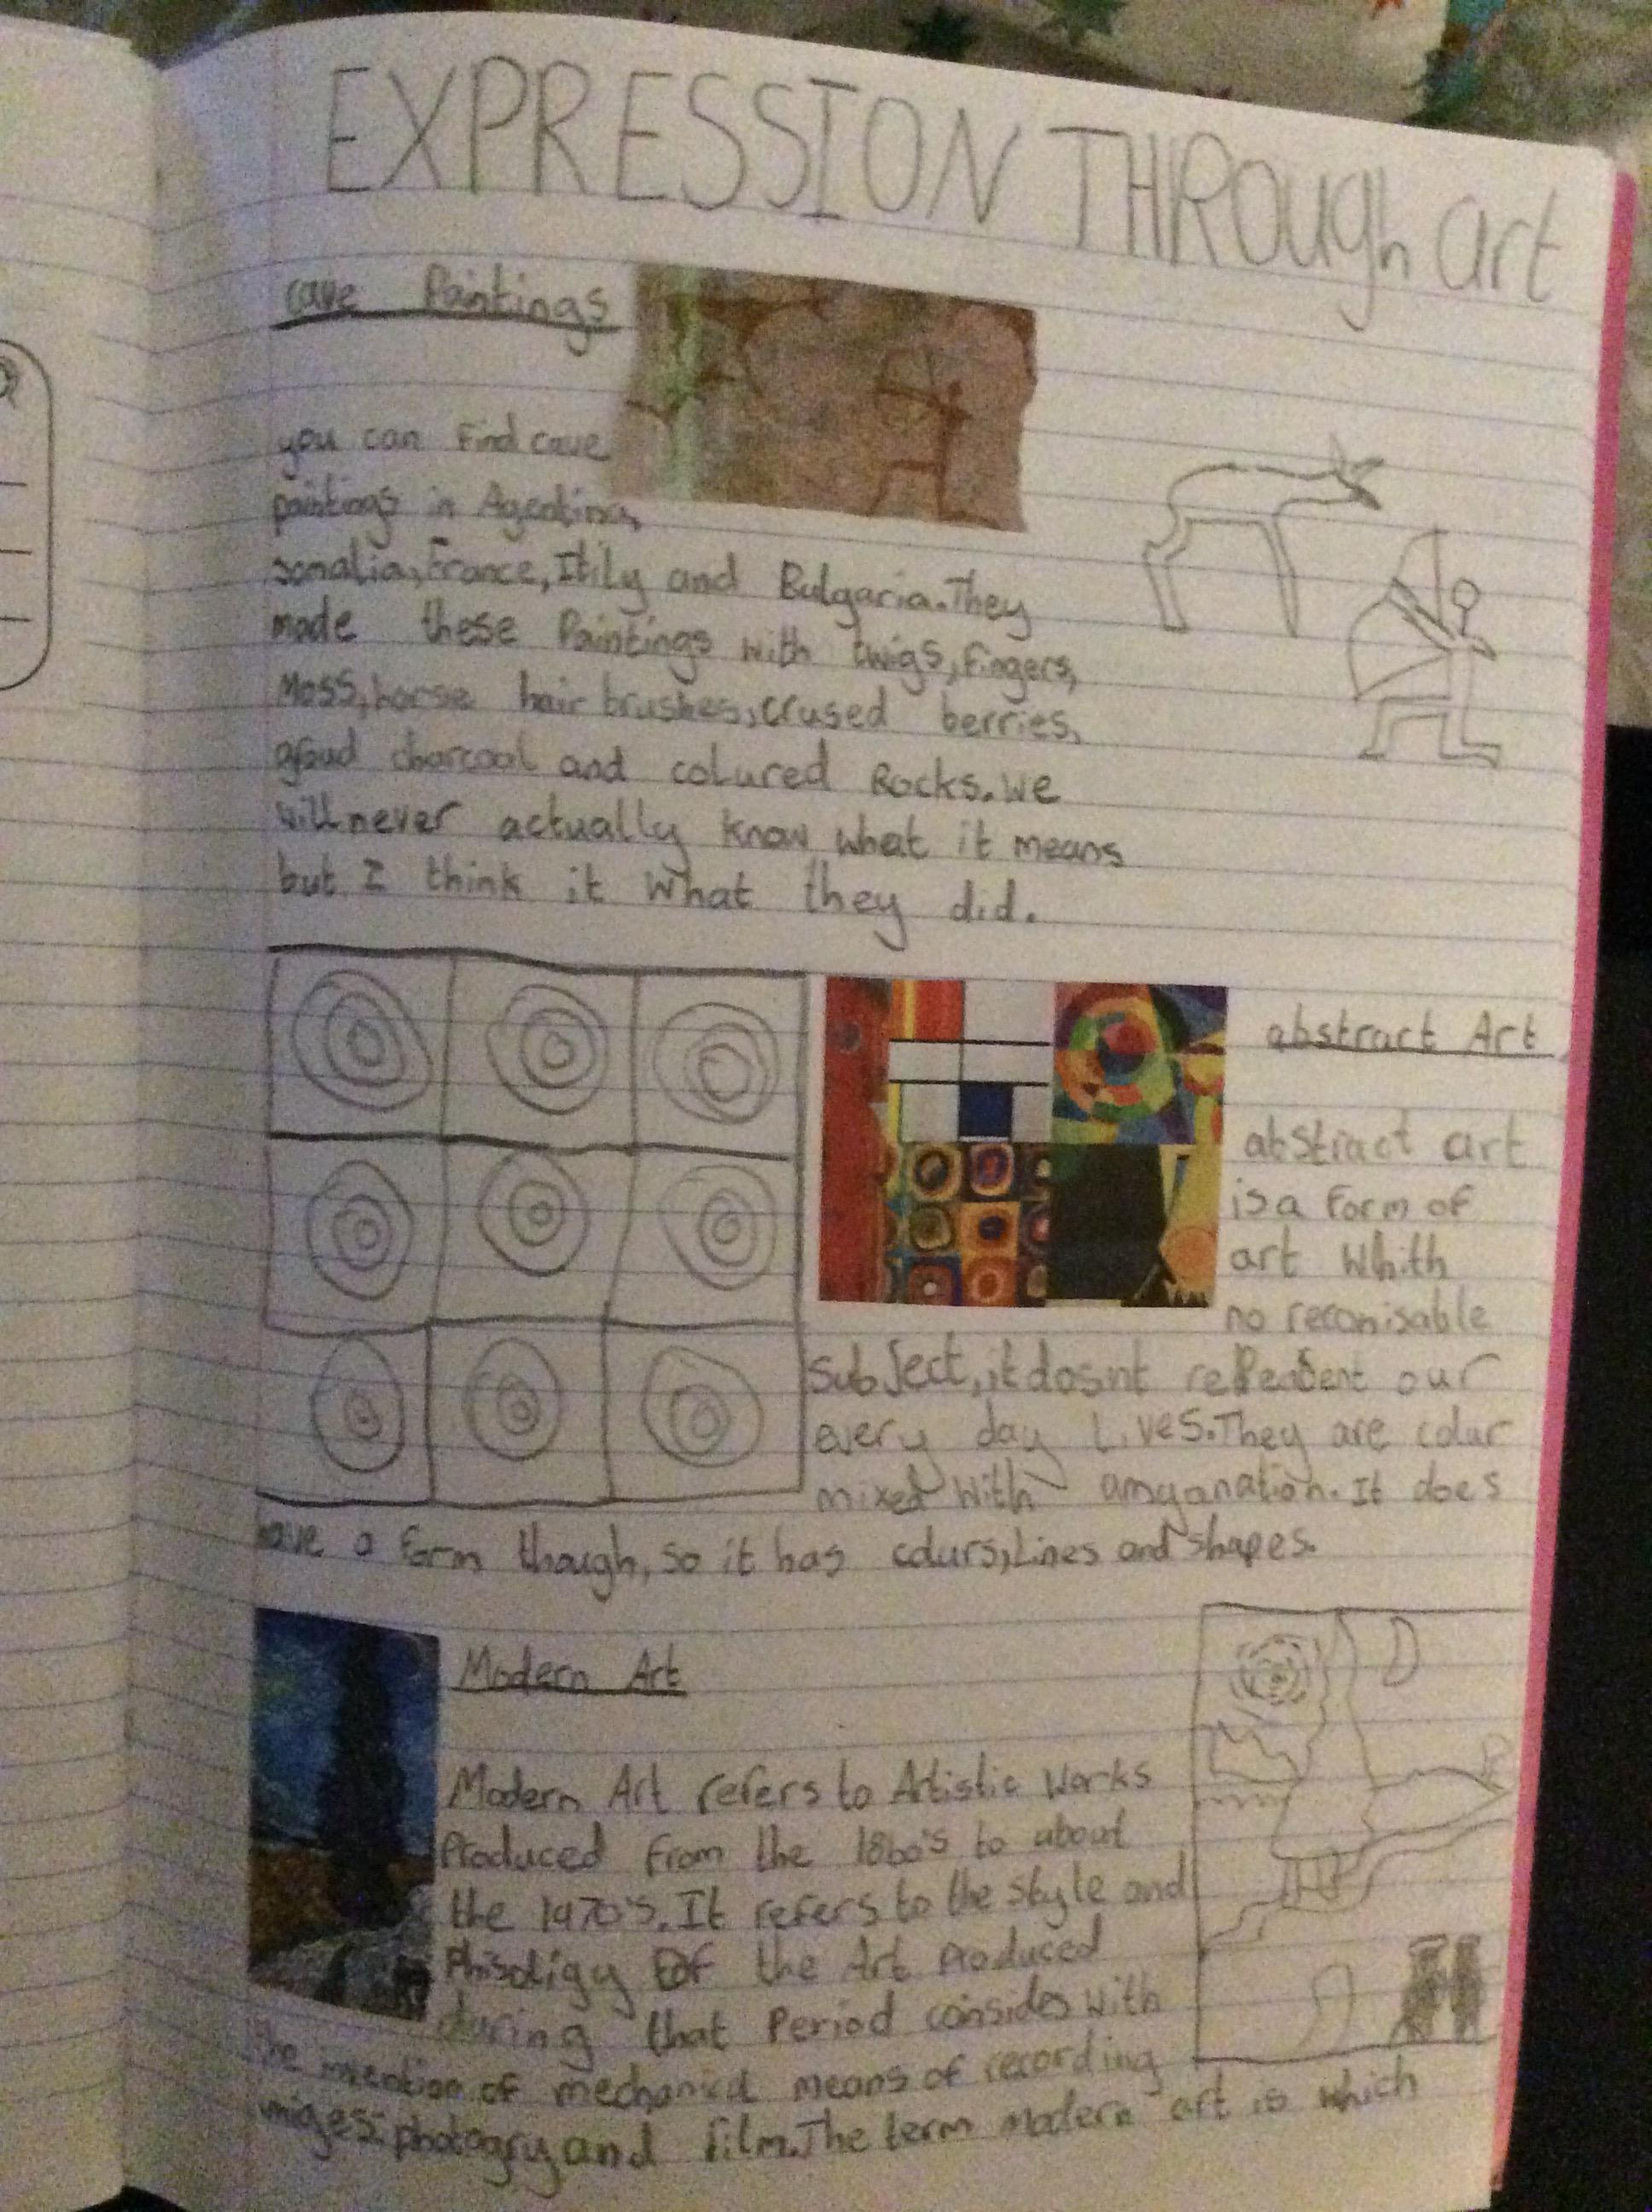 EXPRESSION THROUGh art
cave Paintings
you can Find cave
paintings in Agentina,
somalia, France, Itily and Bulgaria. They
made these Paintings with twigs, fingers,
Moss, horse hair brushes, crused berries,
charcoal and colured Rocks. We
will never actually know what it means
but I think it what they did.
abstract Art
abstract art
is a form of
art whith
no reconisable
subject, it dosnt our
every day Lives. They are colur
mixed with amyanation. It does
have a form though, so it has colurs, Lines and shapes.
Modern Art
Modern Art refers to Artistic Works
Produced from the 1860's to about
the 1970's. It refers to the style and
Phisoligy OF the Art Produced
during that Period consides with
the intention of mechanicl means of recording
imiges: photogry and film. The term modern art is which